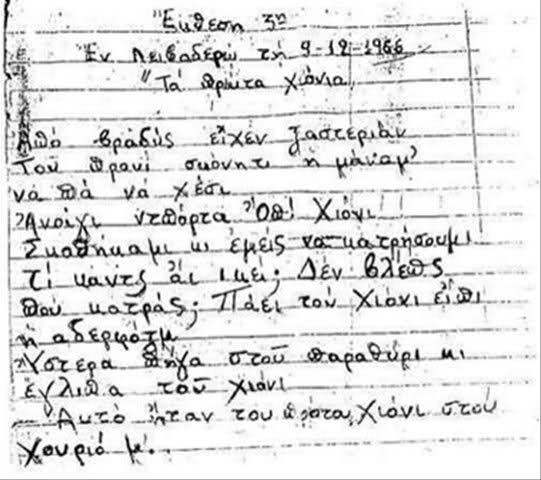 Ἔκθεση 3η
Ἐν Λειβαδερῶ τῆ 9-12-1966
"Τά πρῶτα χιόνια
Ἀπό βραδύς εἶχεν ξαστεριάν
Τοῦ πρανί σκόνητι ἡ μάναμ'
νά πά νά χέσι
Ἀνοίγι ντπόρτα Ὀπ! Χιόνι
Σκοθήκαμι κι ἐμείς να κατρήσουμι
Τί κάντς ἀι ικεί; Δέν βλέπς
που κατράς; Πάει τού Χιόνι εἶπι
ἡ αδερφάτμ
Ὕστερα πῆγα στοῦ παραθύρι κι
ἔγλιπα τοῦ χιόνι
Αυτό ἦταν του πρῶτα χιόνι στού
χουριό μ..